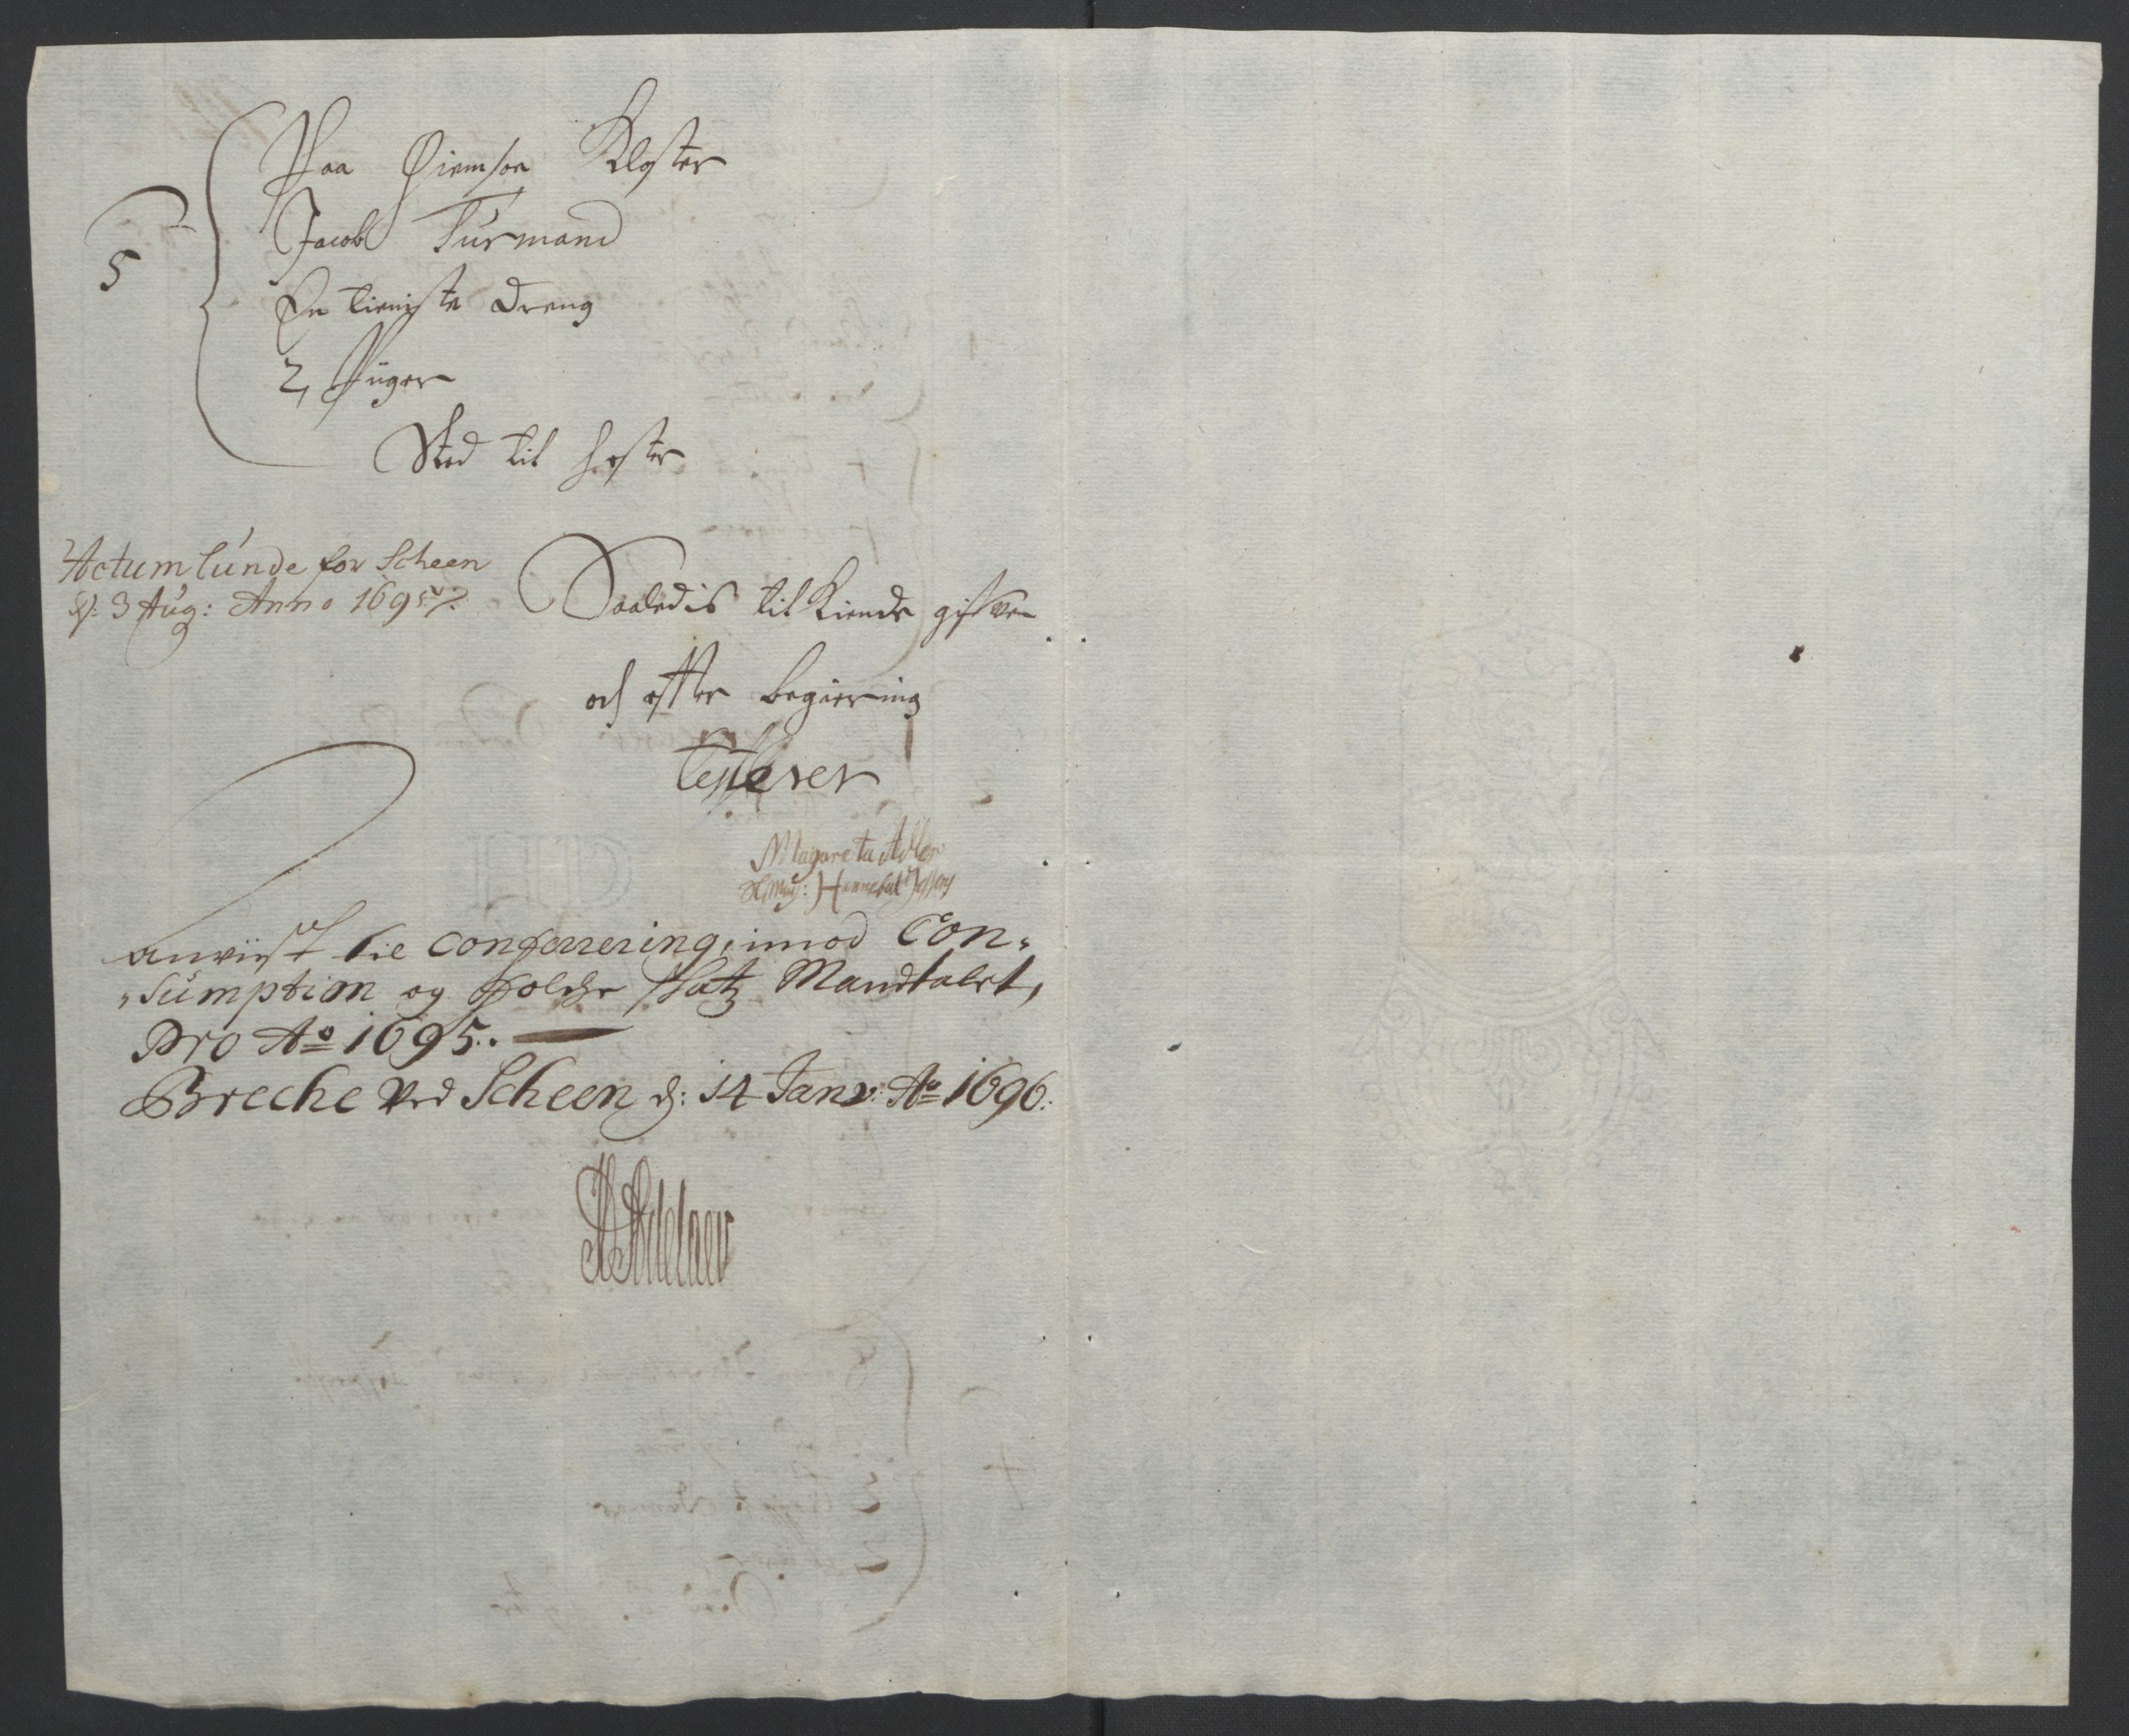 Paa Giemsøe Kloster
Jacob Turmand
En tieniste dreng
5
2 Piiger
Sted til hester
Actum lunde for Scheen
d: 3 Aug: Anno 1695
Saaledis til Kiende gifwen
och efter begiering
Testerer
Magareta Adler
Hannebal Jessens
anviist till conferering, imod Con„
„Sumption og Folche Skatz Mandtalet,
Pro Ao 1695.
Breche ved Scheen d: 14 Janv: Ao 1696.
Adelaer